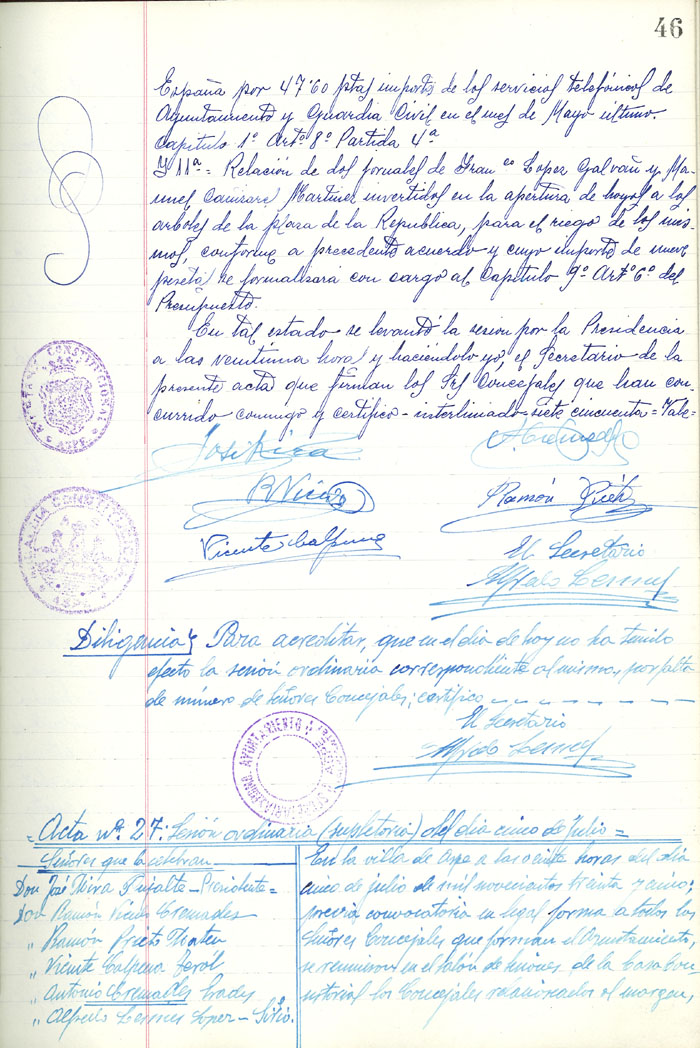 46
España por 47'60 ptas importe de los servicios telefónicos de
Ayuntamiento y Guardia Civil en el mes de Mayo último.
Capítulo 1º Artº 8º Partida 4ª
Y 11ª = Relación de dos jornales de Franco Lopez Galvañ y Ma-
nuel Martinez invertidos en la apertura de hoyos a los
arboles de la plaza de la Republica, para el riego de los mis-
mos, conforme a precedente acuerdo y cuyo importe de nueve
pesetas se formalizará con cargo al Capítulo 9º Artº 6º del
Presupuesto.
En tal estado se levantó la sesion por la Presidencia
a las veintiuna horas y haciéndolo yo, el Secretario de la
presente acta que firman los Srs Concejales que han con-
currido conmigo y certifico - interliniado siete cincuenta = Vale =
AYUNTAMIENTO CONSTITUCIONAL
ASPE
ALCALDIA CONSTITUCIONAL
ASPE
José Rica
Ramón Prieto
Vicente Calpena
El Secretario
Alfredo
Diligencia} Para acreditar, que en el dia de hoy no ha tenido
efecto la sesión ordinaria correspondiente al mismo, por falta
de número de Señores Concejales; certifico
El Secretario
Alfredo
AYUNTAMIENTO
Acta nº 27: Sesión ordinaria (supletoria) del dia cinco de Julio =
Señores que la celebran
Don José Presidente =
Don Ramón Cremades
" Ramón Prieto
" Vicente Calpena
" Antonio Cremades Prades
" Alfredo Lopez - Srio.
En la villa de Aspe a las veinte horas del dia
cinco de julio de mil novecientos treinta y cinco;
previa convocatoria en legal forma a todos los
Señores Concejales que forman el Ayuntamiento,
se reunieron en el salón de sesiones de la Casa Con-
sistorial los Concejales relacionados al margen,